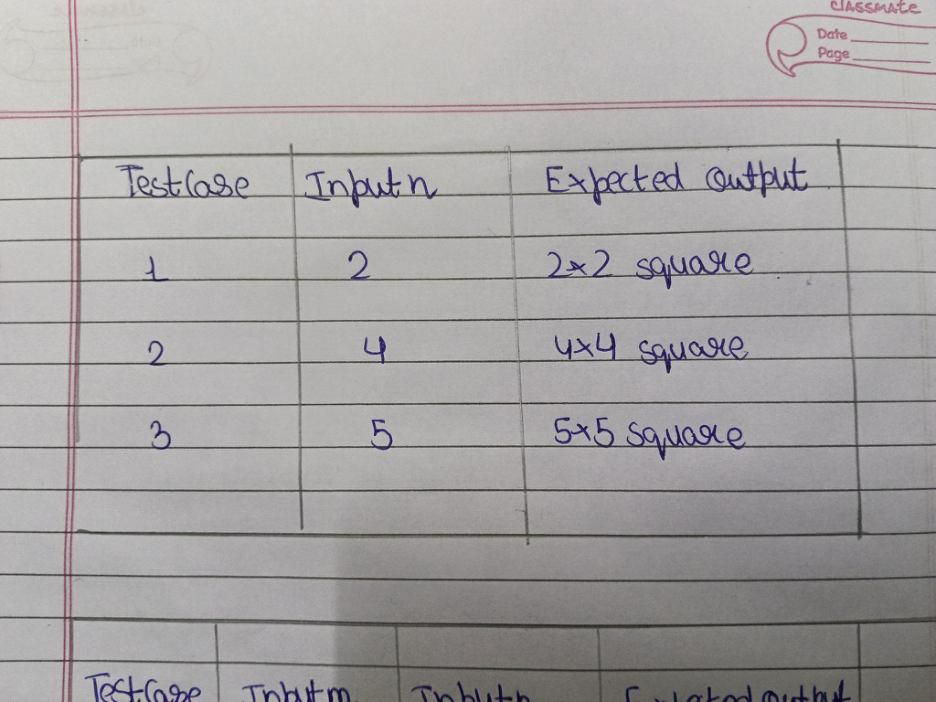 CLASSMATE
Date
Page
TestCase Input n Expected Output
1 2 2×2 square
2 4 4×4 square
3 5 5×5 square
TestCase Input m Input n Expected output